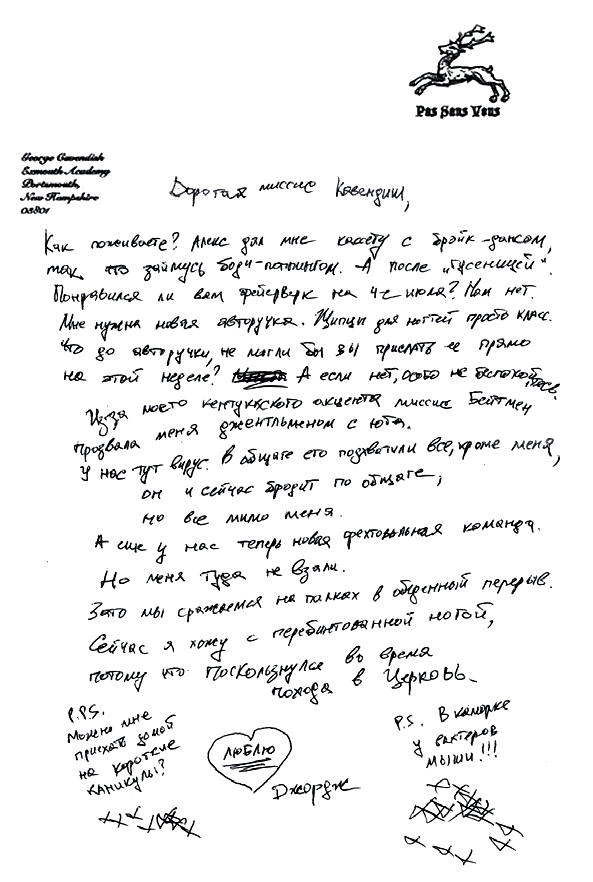 Pas Sans Vous
George Cavendish
Exmouth Academy
Portsmouth,
New Hampshire
03801
Дорогая миссис Кавендиш,
Как поживаете? Алекс дал мне кассету с брэйк-дансом,
так что займусь боди-поппингом. А после „Гусеницей“.
Понравился ли вам фейерверк на 4е июля? Нам нет.
Мне нужна новая авторучка. Щипцы для ногтей просто класс.
Что до авторучки, не могли бы вы прислать ее прямо
на этой неделе? А если нет, особо не беспокойтесь.
Из-за моего кентуккского акцента миссис Бейтмен
прозвала меня джентльменом с юга.
У нас тут вирус. В общаге его подхватили все, кроме меня,
он и сейчас бродит по общаге,
но все мимо меня.
А еще у нас теперь новая фехтовальная команда.
Но меня туда не взяли.
Зато мы сражаемся на палках в обеденный перерыв.
Сейчас я хожу с перебинтованной ногой,
потому что поскользнулся во время
похода в Церковь.
P.P.S.
Можно мне
приехать домой
на короткие
каникулы?
ЛЮБЛЮ
Джордж
P.S. В каморке
у вахтеров
мыши!!!